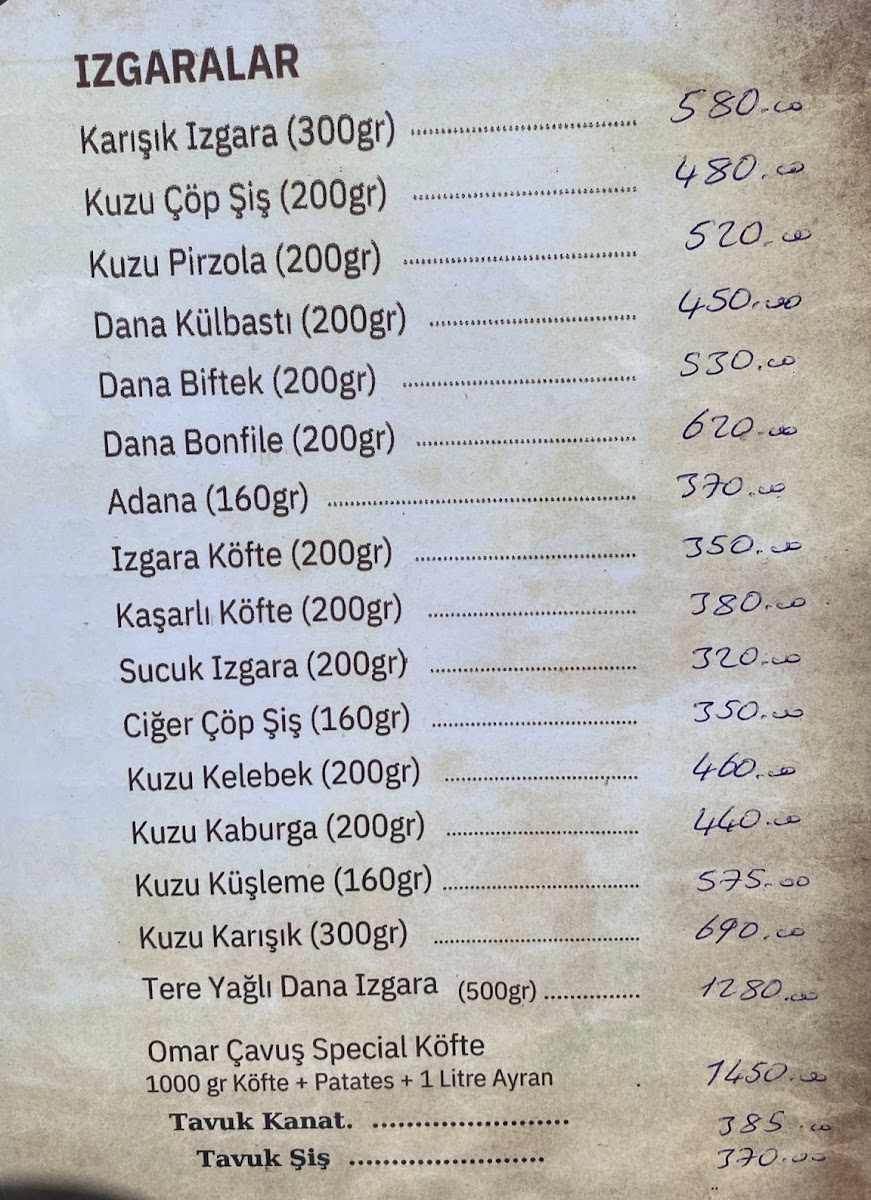 IZGARALAR
Karışık Izgara (300gr) .................... 580.00
Kuzu Çöp Şiş (200gr) .................... 480.00
Kuzu Pirzola (200gr) .................... 520.00
Dana Külbastı (200gr) .................... 450.00
Dana Biftek (200gr) .................... 530.00
Dana Bonfile (200gr) .................... 620.00
Adana (160gr) .................... 370.00
Izgara Köfte (200gr) .................... 350.00
Kaşarlı Köfte (200gr) .................... 380.00
Sucuk Izgara (200gr) .................... 320.00
Ciğer Çöp Şiş (160gr) .................... 350.00
Kuzu Kelebek (200gr) .................... 460.00
Kuzu Kaburga (200gr) .................... 440.00
Kuzu Küşleme (160gr) .................... 575.00
Kuzu Karışık (300gr) .................... 690.00
Tere Yağlı Dana Izgara (500gr) ............... 1280.00
Omar Çavuş Special Köfte
1000 gr Köfte + Patates + 1 Litre Ayran 1450.00
Tavuk Kanat. ........................ 385.00
Tavuk Şiş ........................ 370.00